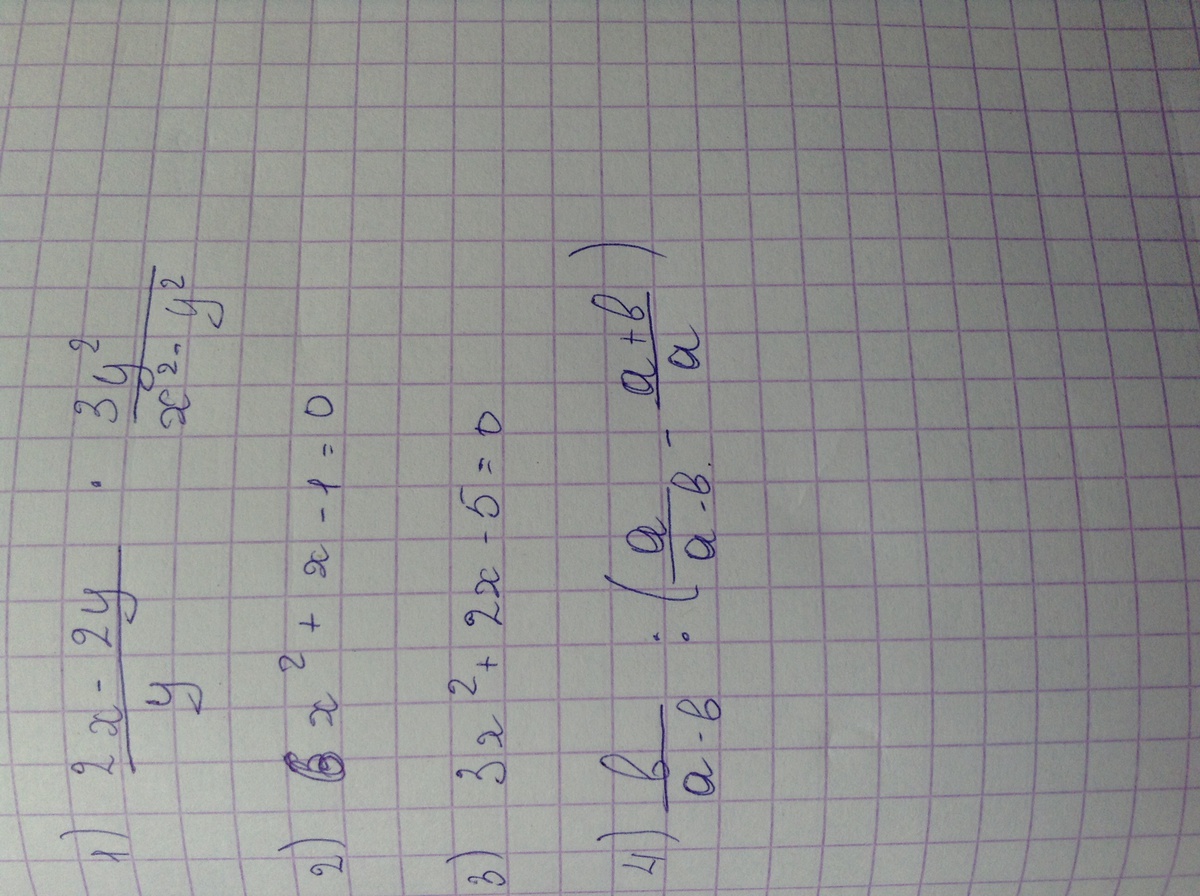 1) \frac{2x - 2y}{y} · \frac{3y^2}{x^2 - y^2}
2) 6x^2 + x - 1 = 0
3) 3x^2 + 2x - 5 = 0
4) \frac{в}{a - в} : (\frac{a}{a - в} - \frac{a + в}{a})